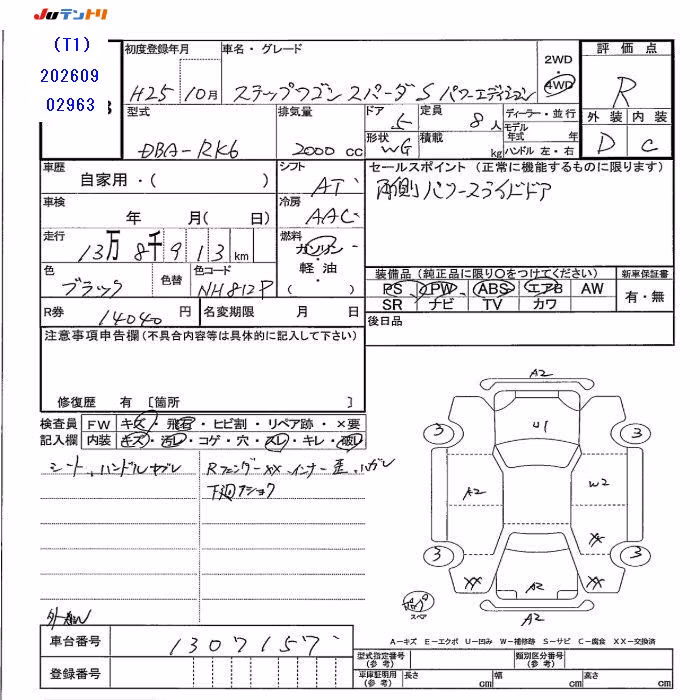 JUテントリ
(T1)
202609
02963
3
初度登録年月
H25 10月
車名・グレード
ステップワゴン スパーダS パワーエディション
2WD
・
4WD
評価点
R
外装 内装
D C
型式
DBA-RK6
排気量
2000 cc
ドア
5
定員
8 人
形状
WG
積載
kg
ディーラー・並行
モデル年式 年
ハンドル 左・右
車歴
自家用・( )
シフト
AT
セールスポイント (正常に機能するものに限ります)
両側パワースライドドア
車検
年 月( 日)
冷房
AAC
走行
13万8千913km
燃料
ガソリン
・
軽油
( )
色
ブラック
色替
色コード
NH812P
装備品 (純正品に限り○をつけてください)
新車保証書
PS PW ABS エアB AW
有・無
SR ナビ TV カワ
R券 14040 円
名変期限 月 日
後日品
注意事項申告欄(不具合内容等は具体的に記入して下さい)
修復歴 有 [箇所 ]
検査員記入欄
FW キズ・飛石・ヒビ割・リペア跡・×要
内装 キズ・汚レ・コゲ・穴・スレ・キレ・破レ
シート、ハンドルヤブレ
RフェンダーXX インナー歪、ハガレ
下廻フショク
A2
3 U1 3
A2 W2
3 XX 3
XX A2 XX
スペア
A2
A-キズ E-エクボ U-凹み W-補修跡 S-サビ C-腐食 XX-交換済
車台番号 1307157
登録番号
型式指定番号(参考)
類別区分番号(参考)
車庫証明用(参考) 長さ cm 幅 cm 高さ cm